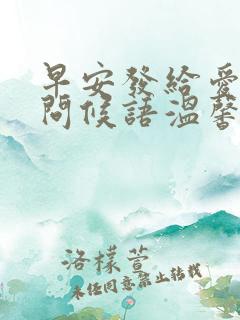 早安發給愛
問候語溫馨
洛樣萱
未经同意禁止转载